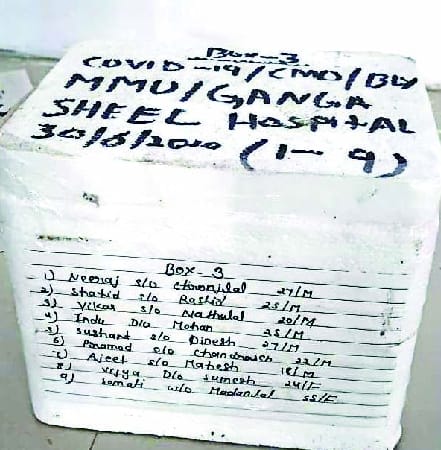 Box-3
COVID-19/CMO/BLY
MMU/GANGA
SHEEL HOSPITAL
30/6/2020 (1-9)
Box-3
1) Neeraj s/o Chironjilal 27/M
2) Shahid s/o Rashid 25/M
3) Vikas s/o Nathulal 20/M
4) Indu D/o Mohan 25/M
5) Sushant s/o Dinesh 27/M
6) Pramod s/o 22/M
7) Ajeet s/o Mahesh 18/M
8) D/o Sumesh 24/F
9) w/o Madanlal 55/F